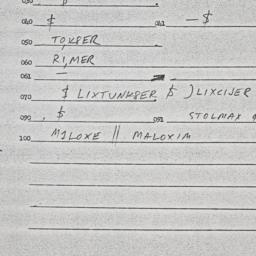 040 $ 041 — $
050 TOKSER
060 RI,MER
061 —
070 $ LIXTUNKSER $ ) LIXCIJER
090 . $ 091 STOLMAX
100 MILOXE || MALOXIM